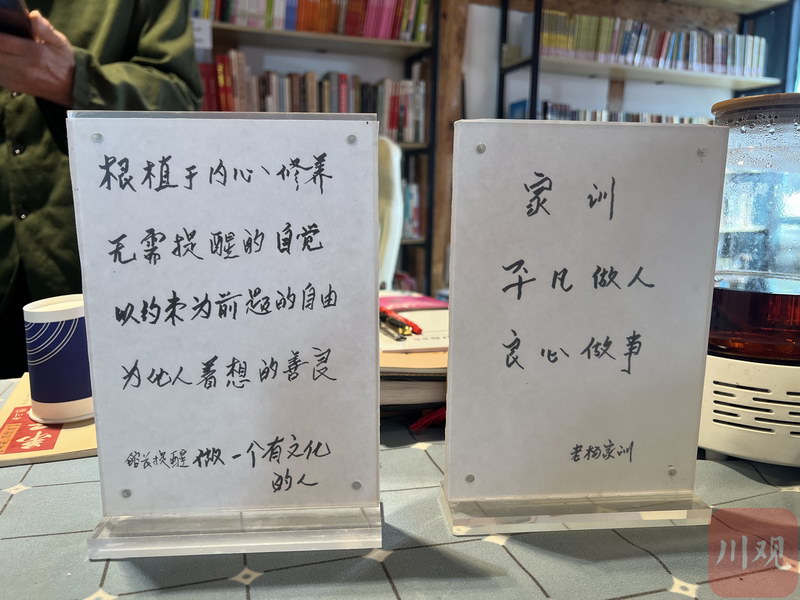 根植于内心、修养
无需提醒的自觉
以约束为前题的自由
为他人着想的善良
馆长提醒 做一个有文化
的人
家训
平凡做人
良心做事
老杨家训
川观